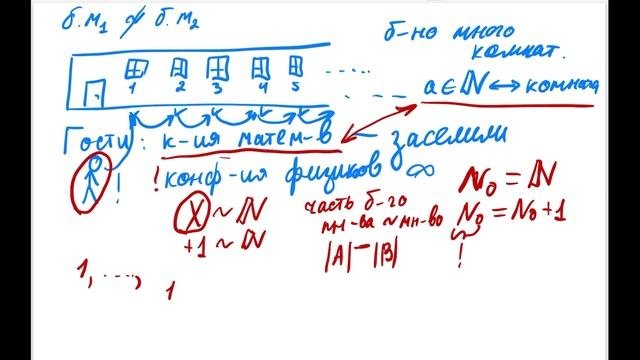 б.м₁ ≁ б.м₂
б-но много
комнат.
1 2 3 4 5 .....
a ∈ ℕ ↔ комната
Гости: к-ия матем-в — заселили
! ! конф-ия физиков ∞
X ~ ℕ
+1 ~ ℕ
часть б-го
мн-ва ~ мн-во
|A| = |B|
ℵ₀ = ℕ
ℵ₀ = ℵ₀ + 1
!
1, ....,
1